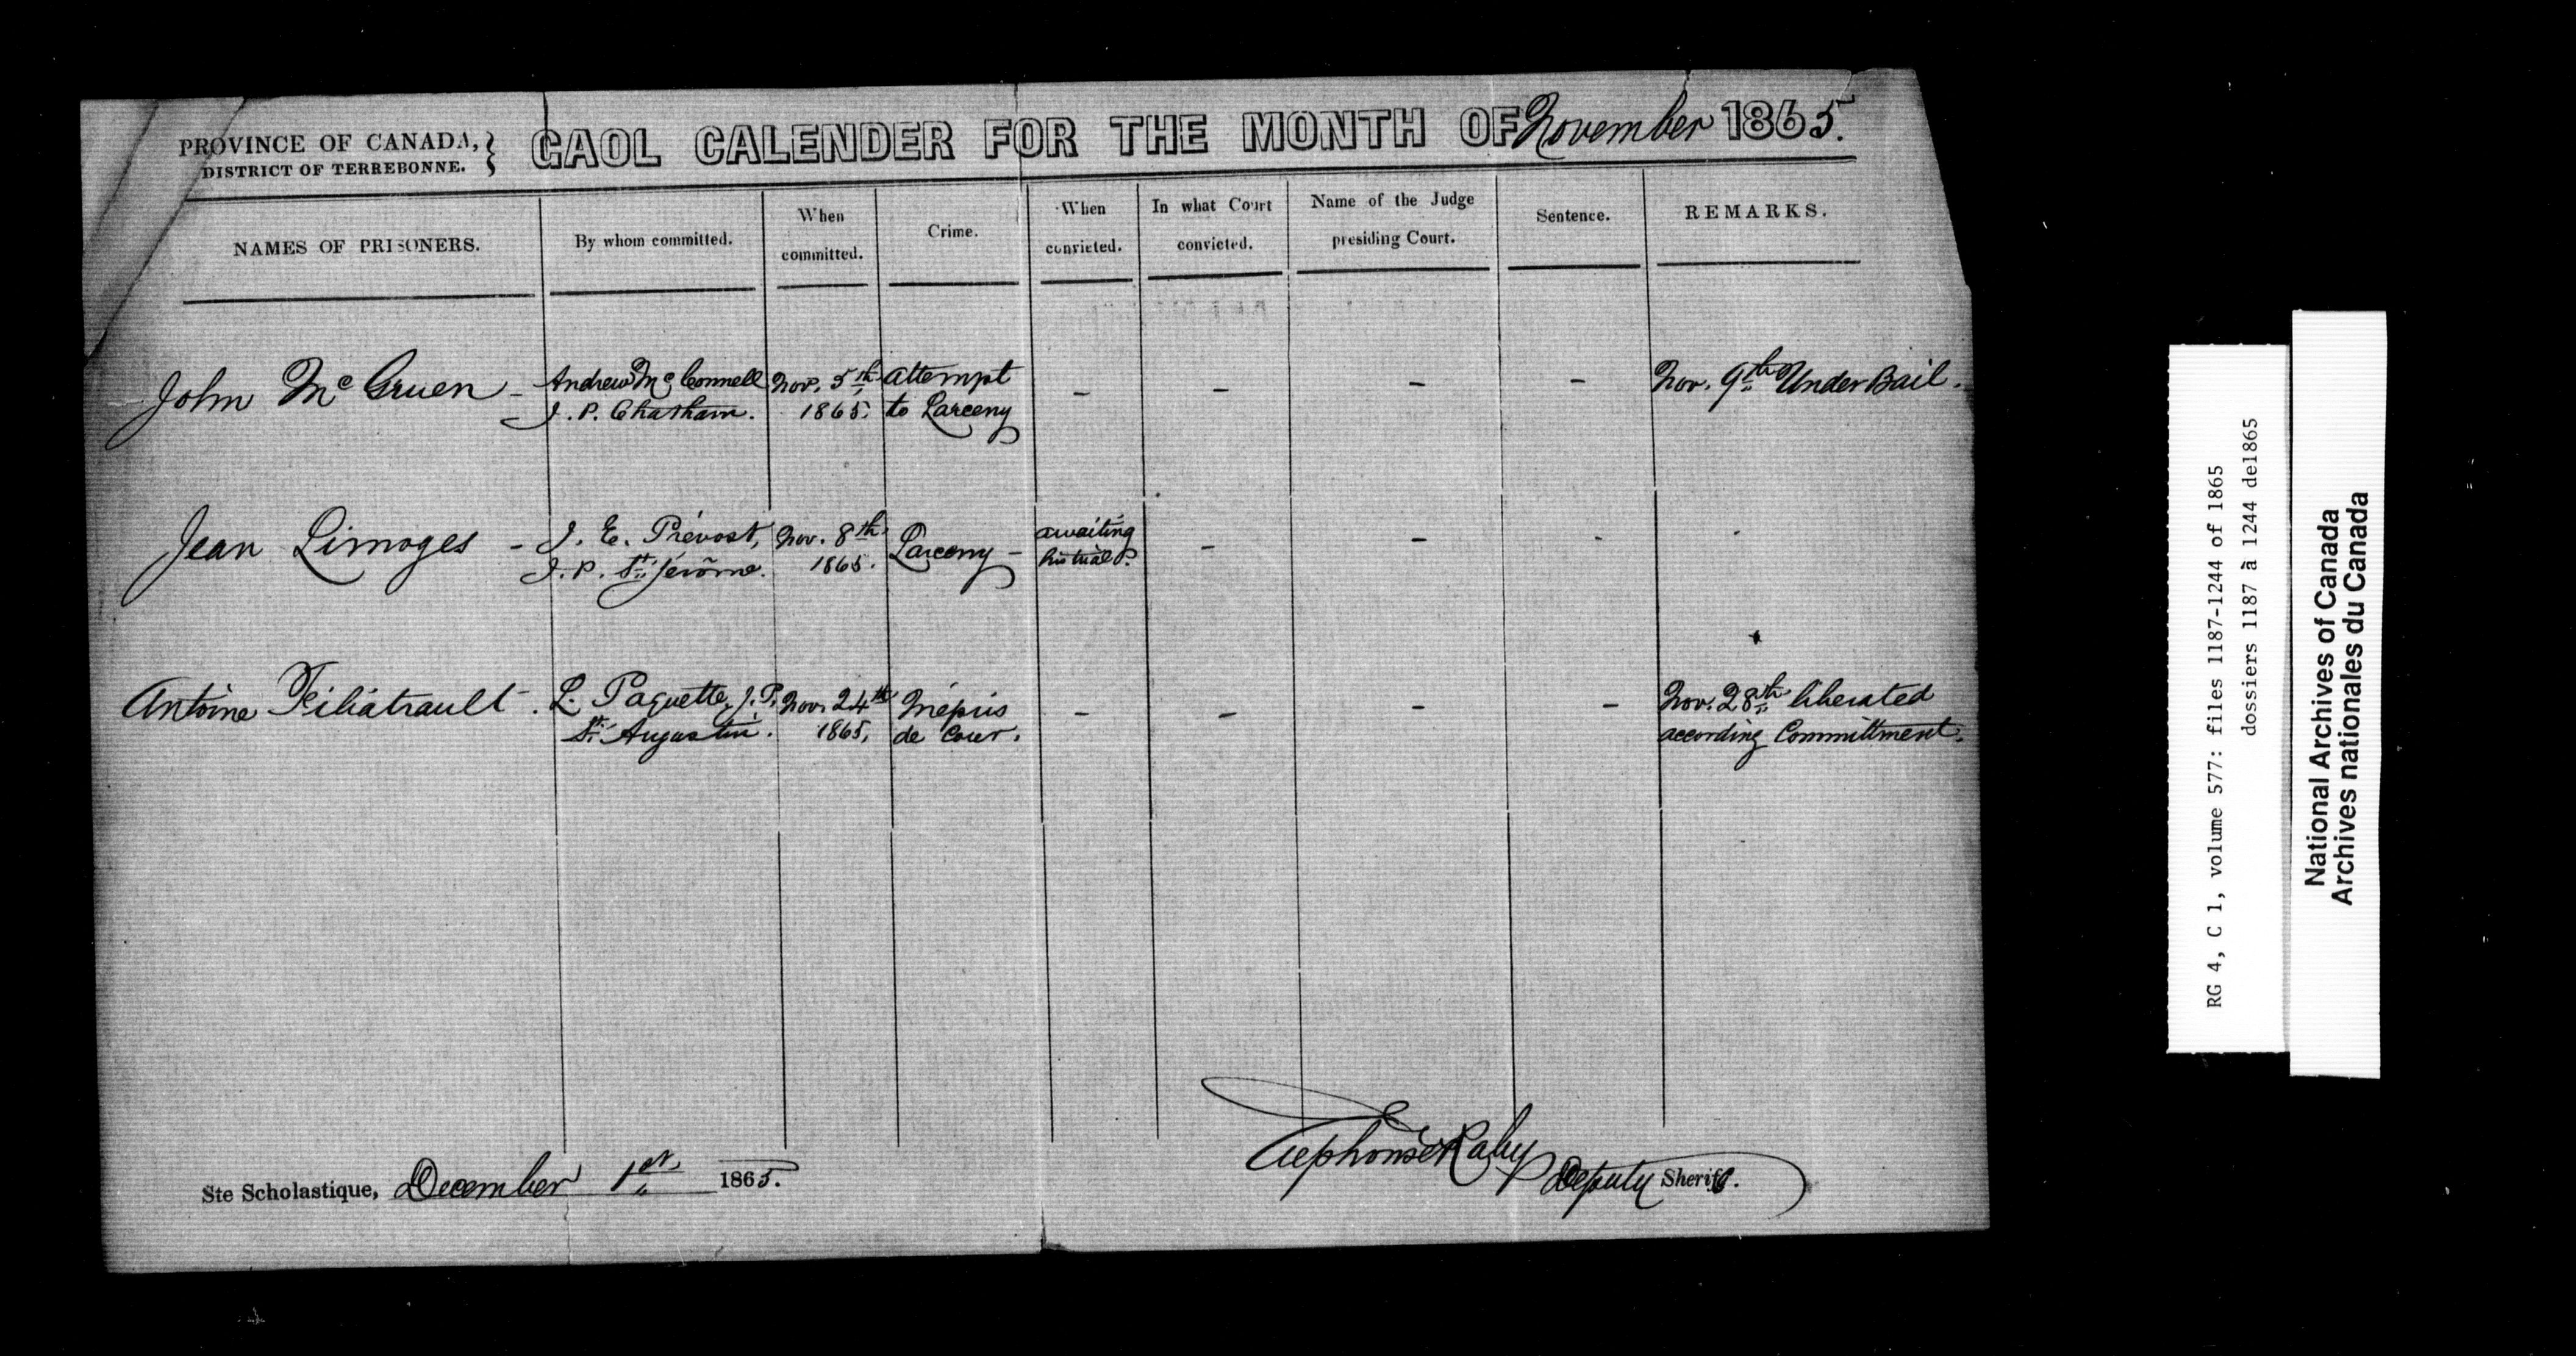 PROVINCE OF CANADA,
DISTRICT OF TERREBONNE.
GAOL CALENDER FOR THE MONTH OF November 1865.
NAMES OF PRISONERS.
By whom committed.
When
committed.
Crime.
When
convicted.
In what Court
convicted.
Name of the Judge
presiding Court.
Sentence.
REMARKS.
John Mc Gruen -
Andrew Mc Connell
J. P. Chatham.
Nov. 5th
1865.
attempt
to Larceny
-
-
-
-
Nov. 9th Under Bail.
Jean Limoges -
J. E. Prévost,
J. P. St Jérôme.
Nov. 8th
1865.
Larceny -
awaiting
his trial.
-
-
-
Antoine Filiatrault -
L. Paquette, J. P.
St Augustin.
Nov. 24th
1865.
Mépris
de Cour.
-
-
-
-
Nov. 28th liberated
according Committment.
Ste Scholastique, December 1st 1865.
Alphonse Raby
Deputy Sheriff.
RG 4, C 1, volume 577: files 1187-1244 of 1865
dossiers 1187 à 1244 de1865
National Archives of Canada
Archives nationales du Canada